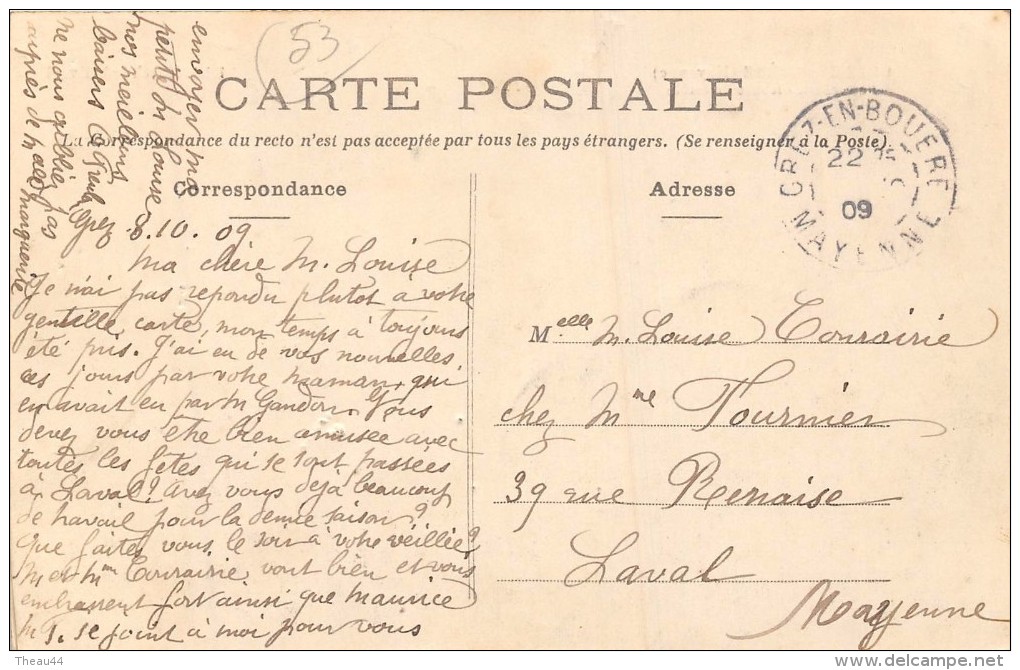 53
CARTE POSTALE
La Correspondance du recto n'est pas acceptée par tous les pays étrangers. (Se renseigner à la Poste).
Correspondance
Adresse
GREZ-EN-BOUERE
22
09
MAYENNE
Grez 8.10.09
Ma chère M. Louise
Je n'ai pas repondu plutot à votre
gentille carte, mon temps à toujours
été pris. J'ai eu de vos nouvelles
ces jours par votre maman, qui
en avait eu par M Gandon. Vous
devez vous etre bien amusée avec
toutes les fetes qui se sont passées
à Laval? Avez vous deja beaucoup
de travail pour la demie saison?
Que faites vous le soir à votre veillée?
M et Mme Courairie vont bien et vous
embrassent fort ainsi que Maurice
M.T. se joint à moi pour vous
envoyer ma
petite Louise
nos meilleurs
baisers
ne nous oubliez pas
auprès de Marguerite
Melle M. Louise Courairie
chez Mme Tournier
39 rue Renaise
Laval
Mayenne
Theau44
delcampe.net